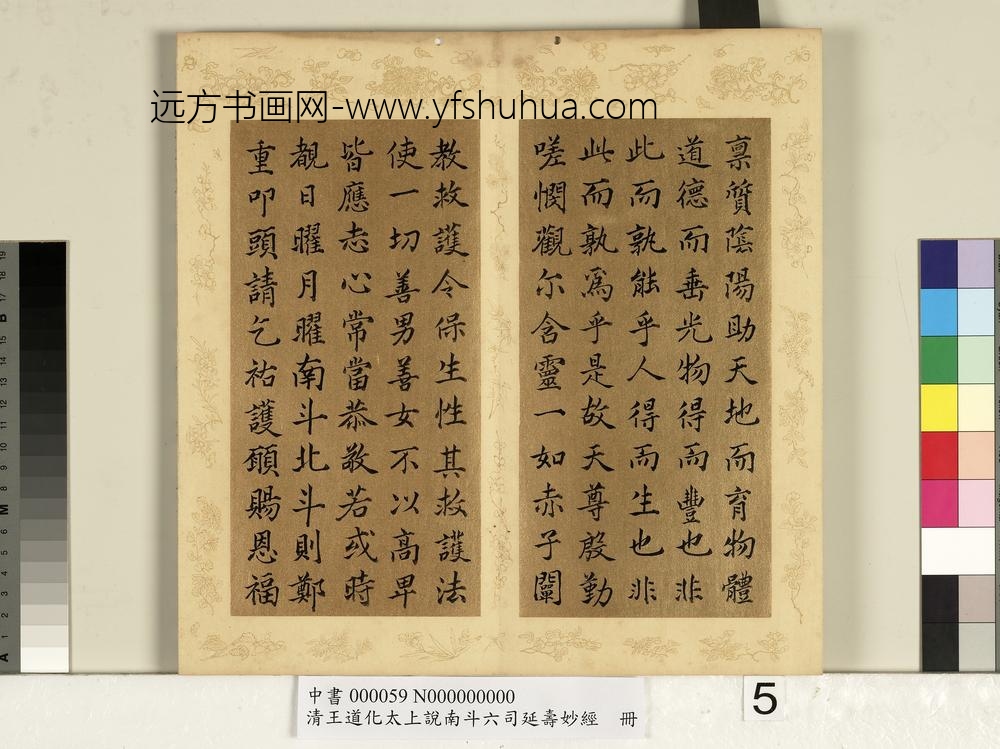 远方书画网-www.yfshuhua.com
稟質陰陽助天地而育物體
道德而垂光物得而豐也非
此而孰能乎人得而生也非
此而孰為乎是故天尊殷勤
嗟憫觀尔含靈一如赤子闡
教救護令保生性其救護法
使一切善男善女不以高卑
皆應志心常當恭敬若或時
覩日曜月曜南斗北斗則鄭
重叩頭請乞祐護願賜恩福
中書 000059 N000000000
清王道化太上說南斗六司延壽妙經 冊
5